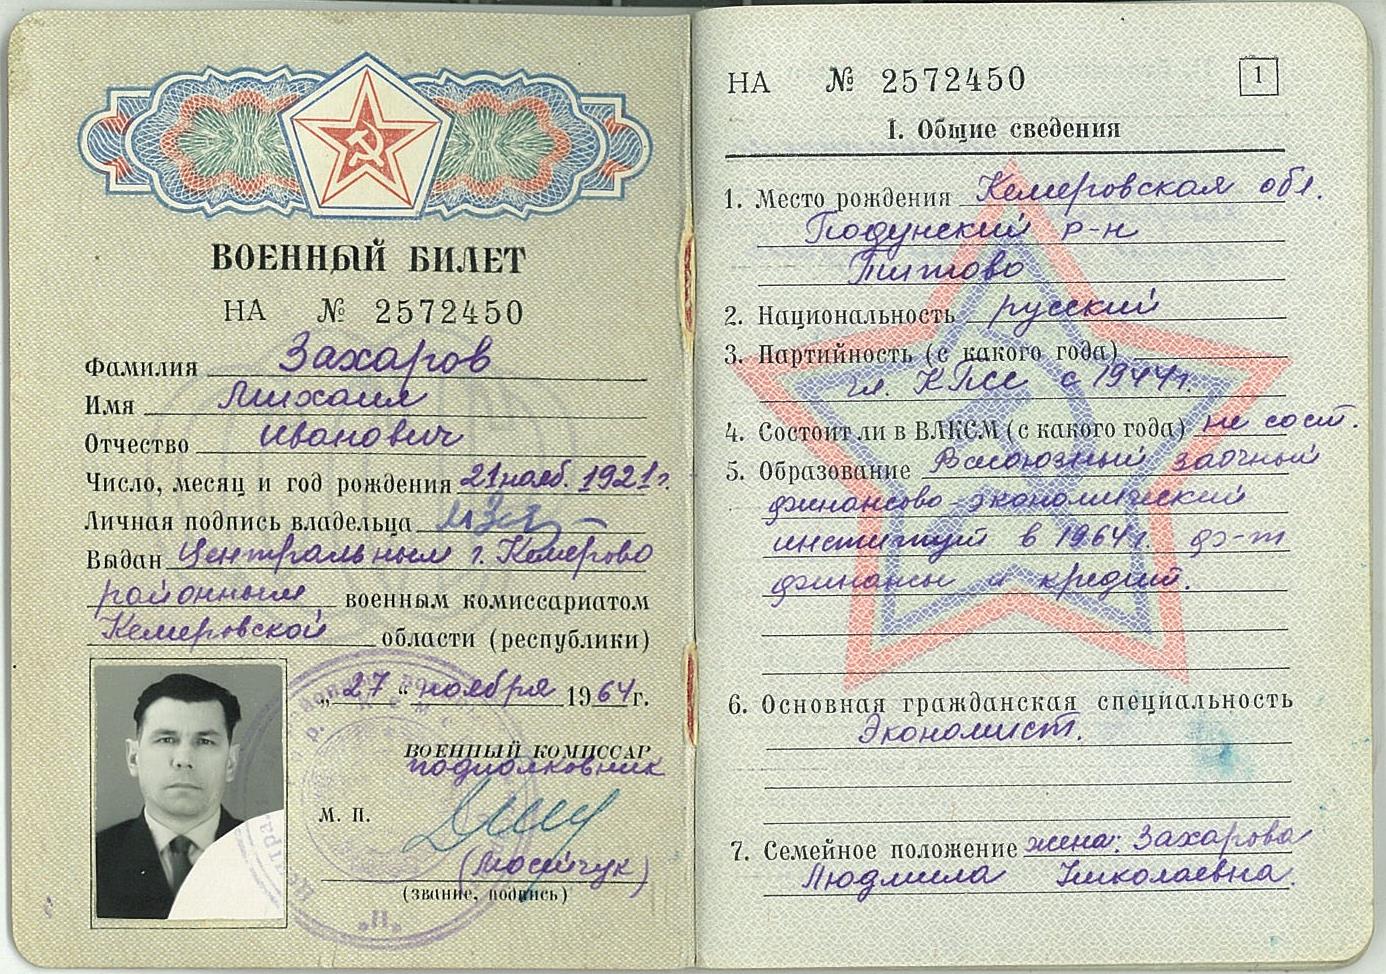 ВОЕННЫЙ БИЛЕТ
НА № 2572450
Фамилия Захаров
Имя Михаил
Отчество Иванович
Число, месяц и год рождения 21 нояб. 1921 г.
Личная подпись владельца
Выдан Центральным г. Кемерово
районным военным комиссариатом
Кемеровской области (республики)
„27“ ноября 1964 г.
ВОЕННЫЙ КОМИССАР
подполковник
М. П.
(Мосийчук)
(звание, подпись)
НА № 2572450
1
I. Общие сведения
1. Место рождения Кемеровская обл.
Тогучинский р-н
Титово
2. Национальность русский
3. Партийность (с какого года)
чл. КПСС с 1944 г.
4. Состоит ли в ВЛКСМ (с какого года) не сост.
5. Образование Всесоюзный заочный
финансово-экономический
институт в 1964 г. ф-т
финансы и кредит.
6. Основная гражданская специальность
Экономист.
7. Семейное положение жена: Захарова
Людмила Николаевна.